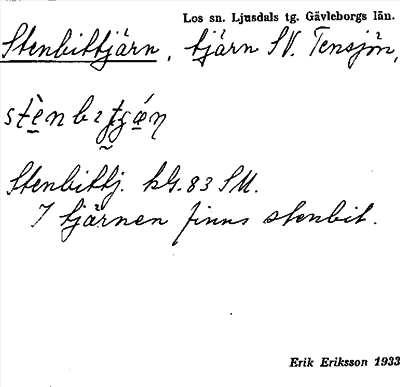 Los sn. Ljusdals tg. Gävleborgs län.
Stenbittjärn, tjärn SV. Tensjön,
Stenbittj. kG. 83 SU.
I tjärnen finns stenbit.
Erik Eriksson 1933